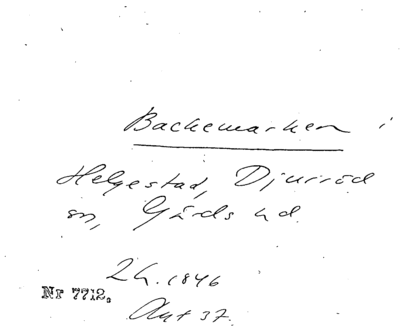 Backemarken i
Helgestad, Djurröd
sn, Gärds hd.
2h. 1846
Nr 7712.
Avt 37.